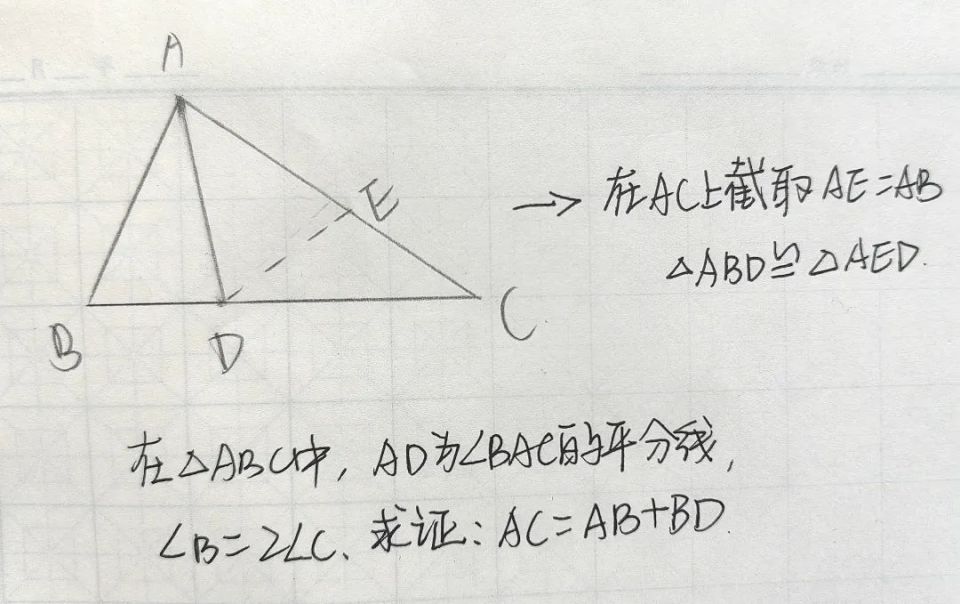 A
E
B
D
C
→ 在AC上截取AE=AB
△ABD≌△AED.
在△ABC中，AD为∠BAC的平分线，
∠B=2∠C、求证：AC=AB+BD.